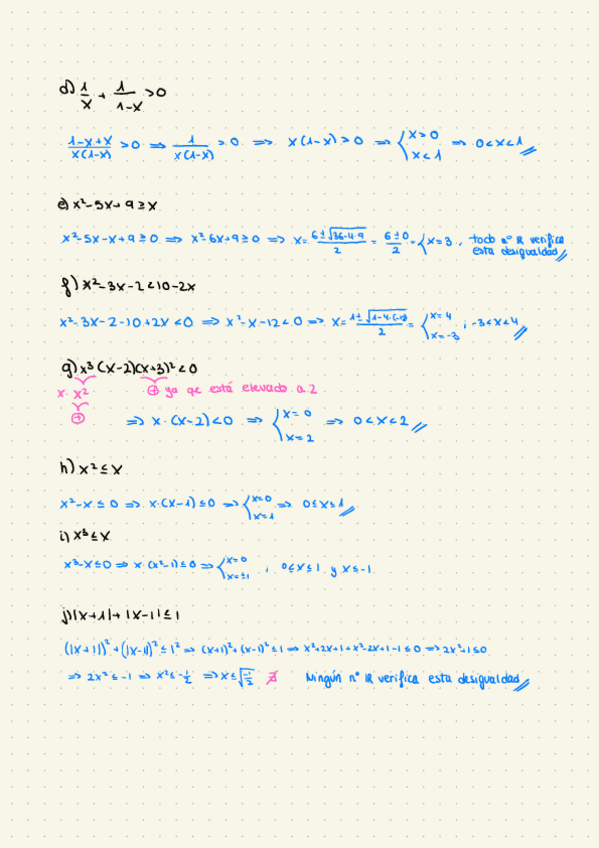 d) 1/x + 1/(1-x) > 0
(1-x+x)/(x(1-x)) > 0 ⇒ 1/(x(1-x)) > 0 ⇒ x(1-x) > 0 ⇒ { x > 0 x < 1 ⇒ 0 < x < 1
e) x²-5x+9 ≥ x
x²-5x-x+9 ≥ 0 ⇒ x²-6x+9 ≥ 0 ⇒ x = (6±√(36-4·9))/2 = (6±0)/2 = { x=3, todo nº ℝ verifica
esta desigualdad
f) x²-3x-2 < 10-2x
x²-3x-2-10+2x < 0 ⇒ x²-x-12 < 0 ⇒ x = (1±√(1-4·(-12)))/2 = { x=4 x=-3 ; -3 < x < 4
g) x³(x-2)(x+3)² < 0
x · x² ⊕ ya que está elevado a 2
⊕
⇒ x·(x-2) < 0 ⇒ { x=0 x=2 ⇒ 0 < x < 2
h) x² ≤ x
x²-x ≤ 0 ⇒ x·(x-1) ≤ 0 ⇒ { x=0 x=1 ⇒ 0 ≤ x ≤ 1
i) x³ ≤ x
x³-x ≤ 0 ⇒ x·(x²-1) ≤ 0 ⇒ { x=0 x=±1 ; 0 ≤ x ≤ 1 y x ≤ -1
j) |x+1| + |x-1| ≤ 1
(|x+1|)² + (|x-1|)² ≤ 1² ⇒ (x+1)² + (x-1)² ≤ 1 ⇒ x²+2x+1+x²-2x+1-1 ≤ 0 ⇒ 2x²+1 ≤ 0
⇒ 2x² ≤ -1 ⇒ x² ≤ -1/2 ⇒ x ≤ √(-1/2) ∄ Ningún nº ℝ verifica esta desigualdad